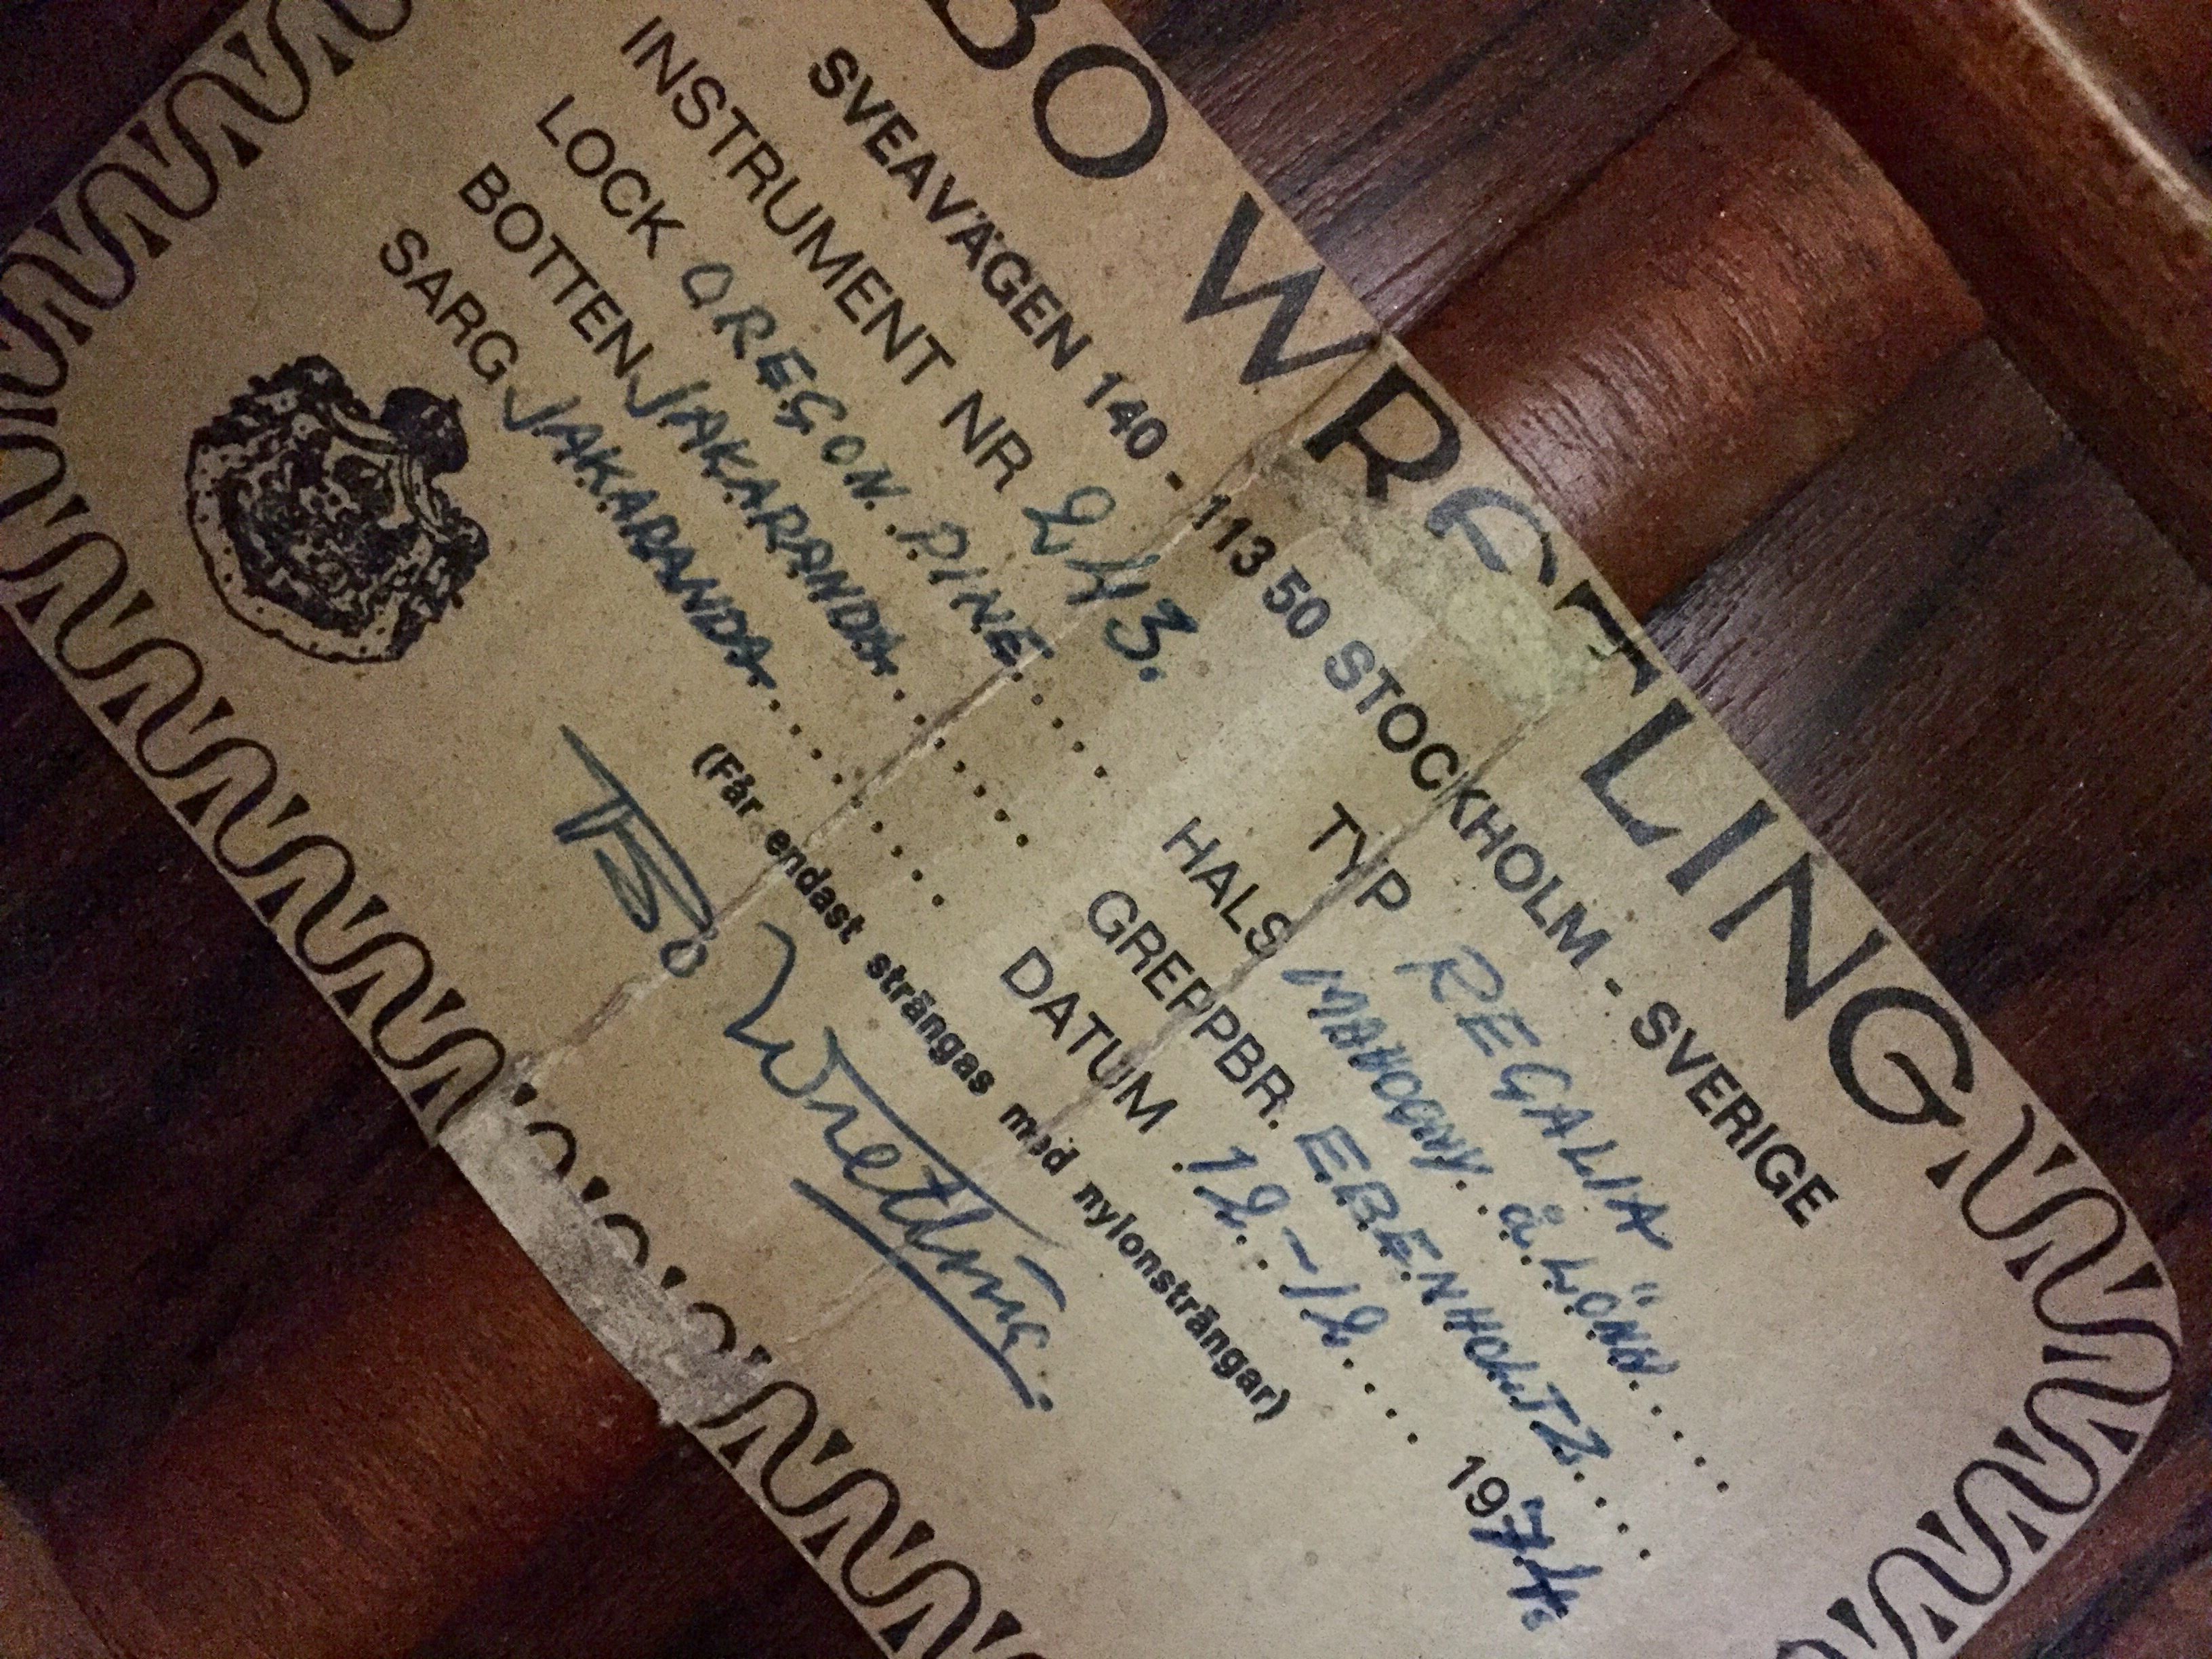 BO WRETLING
SVEAVÄGEN 140 - 113 50 STOCKHOLM - SVERIGE
INSTRUMENT NR 243. TYP REGALIA
LOCK OREGON PINE..... HALS MAHOGNY. å. LÖNN....
BOTTEN JAKARANDA...... GREPPBR. EBENHOLTZ....
SARG JAKARANDA........ DATUM .12.-12..... 1974.
(Får endast strängas med nylonsträngar)
Bo Wretling.